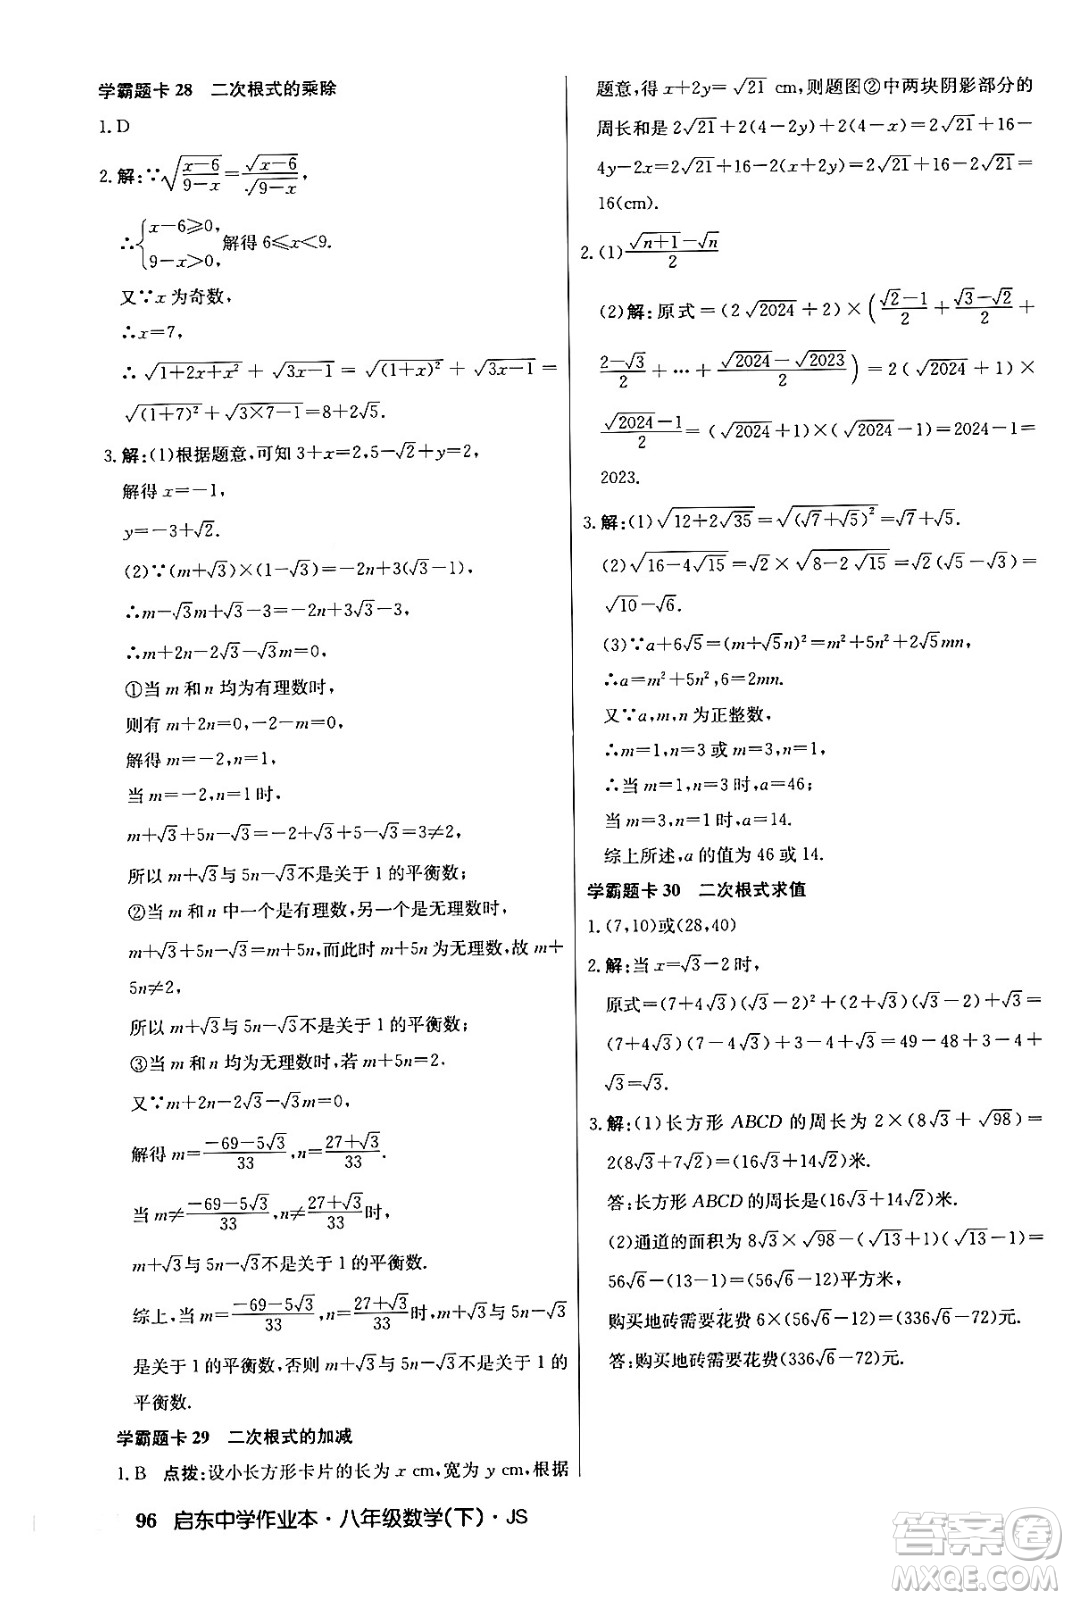 学霸题卡 28 二次根式的乘除
1. D
2. 解:∵√((x−6)/(9−x))=√(x−6)/√(9−x),
∴{x−6≥0, 9−x>0, 解得 6≤x<9.
又∵x 为奇数,
∴x=7,
∴ √(1+2x+x²) + √(3x−1) = √((1+x)²) + √(3x−1) =
√((1+7)²) + √(3×7−1)=8+2√5.
3. 解:(1)根据题意,可知 3+x=2,5−√2+y=2,
解得 x=−1,
y=−3+√2.
(2)∵(m+√3)×(1−√3)=−2n+3(√3−1),
∴m−√3m+√3−3=−2n+3√3−3,
∴m+2n−2√3−√3m=0,
①当 m 和 n 均为有理数时,
则有 m+2n=0,−2−m=0,
解得 m=−2,n=1,
当 m=−2,n=1 时,
m+√3+5n−√3=−2+√3+5−√3=3≠2,
所以 m+√3与 5n−√3不是关于 1 的平衡数;
②当 m 和 n 中一个是有理数,另一个是无理数时,
m+√3+5n−√3=m+5n,而此时 m+5n 为无理数,故 m+
5n≠2,
所以 m+√3与 5n−√3不是关于 1 的平衡数;
③当 m 和 n 均为无理数时,若 m+5n=2.
又∵m+2n−2√3−√3m=0,
解得 m=(−69−5√3)/33,n=(27+√3)/33,
当 m≠(−69−5√3)/33,n≠(27+√3)/33时,
m+√3与 5n−√3不是关于 1 的平衡数.
综上,当 m=(−69−5√3)/33,n=(27+√3)/33时,m+√3与 5n−√3
是关于 1 的平衡数,否则 m+√3与 5n−√3不是关于 1 的
平衡数.
学霸题卡 29 二次根式的加减
1. B 点拨:设小长方形卡片的长为 x cm,宽为 y cm,根据
题意,得 x+2y=√21 cm,则题图②中两块阴影部分的
周长和是 2√21+2(4−2y)+2(4−x)=2√21+16−
4y−2x=2√21+16−2(x+2y)=2√21+16−2√21=
16(cm).
2. (1)(√(n+1)−√n)/2
(2)解:原式=(2√2024÷2)×((√2−1)/2+(√3−√2)/2+
(2−√3)/2+…+(√2024−√2023)/2)=2(√2024+1)×
(√2024−1)/2=(√2024+1)×(√2024−1)=2024−1=
2023.
3. 解:(1)√(12+2√35)=√((√7+√5)²)=√7+√5.
(2)√(16−4√15)=√2×√(8−2√15)=√2(√5−√3)=
√10−√6.
(3)∵a+6√5=(m+√5n)²=m²+5n²+2√5mn,
∴a=m²+5n²,6=2mn.
又∵a,m,n 为正整数,
∴m=1,n=3 或 m=3,n=1,
∴当 m=1,n=3 时,a=46;
当 m=3,n=1 时,a=14.
综上所述,a 的值为 46 或 14.
学霸题卡 30 二次根式求值
1. (7,10)或(28,40)
2. 解:当 x=√3−2 时,
原式=(7+4√3)(√3−2)²+(2+√3)(√3−2)+√3=
(7+4√3)(7−4√3)+3−4+√3=49−48+3−4+
√3=√3.
3. 解:(1)长方形 ABCD 的周长为 2×(8√3+√98)=
2(8√3+7√2)=(16√3+14√2)米.
答:长方形 ABCD 的周长是(16√3+14√2)米.
(2)通道的面积为 8√3×√98−(√13+1)(√13−1)=
56√6−(13−1)=(56√6−12)平方米,
购买地砖需要花费 6×(56√6−12)=(336√6−72)元.
答:购买地砖需要花费(336√6−72)元.
96 启东中学作业本·八年级数学(下)·JS
作业精灵
MXQE.COM